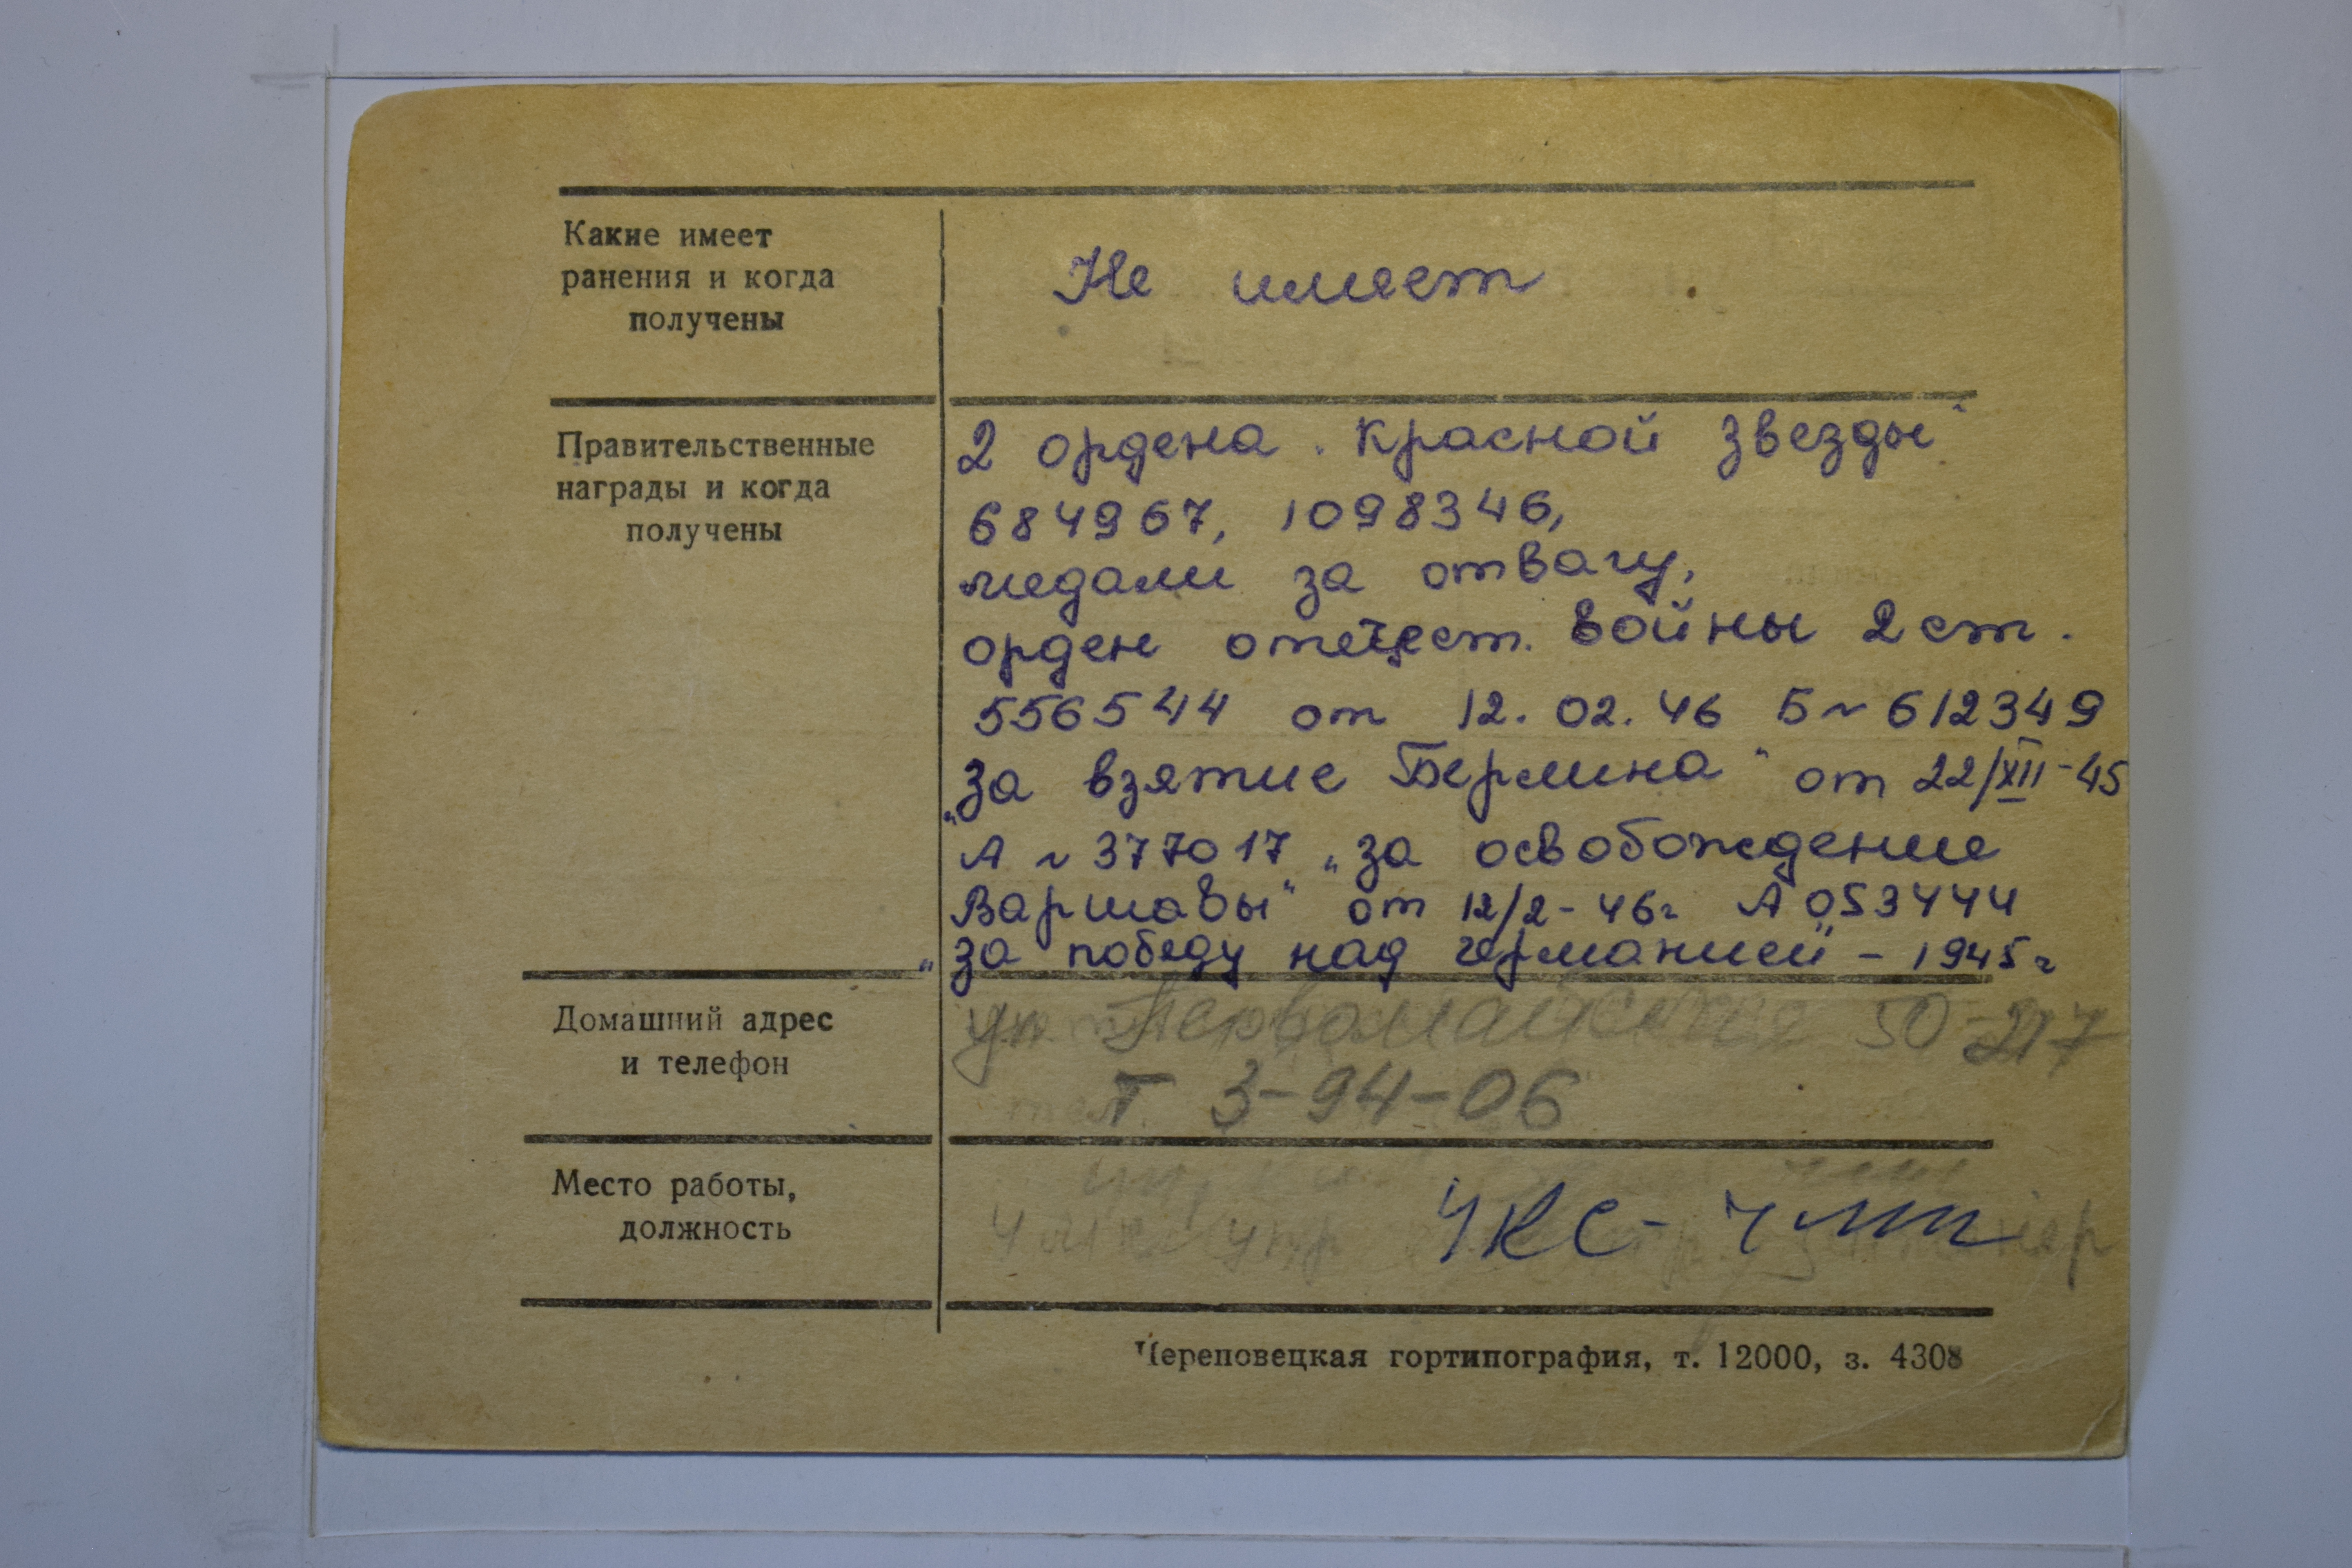 Какие имеет
ранения и когда
получены
Не имеет
Правительственные
награды и когда
получены
2 ордена „Красной Звезды“
684967, 1098346,
медали за отвагу,
орден отечест. Войны 2 ст.
556544 от 12.02.46 Б ~ 612349
„За взятие Берлина“ от 22/XII-45
А ~ 377017 „за освобождение
Варшавы“ от 12/2-46г А 053444
„за победу над германией“ - 1945г
Домашний адрес
и телефон
ул. Первомайская 50-217
Т 3-94-06
Место работы,
должность
УКС - ЧМП
Череповецкая гортипография, т. 12000, з. 4308